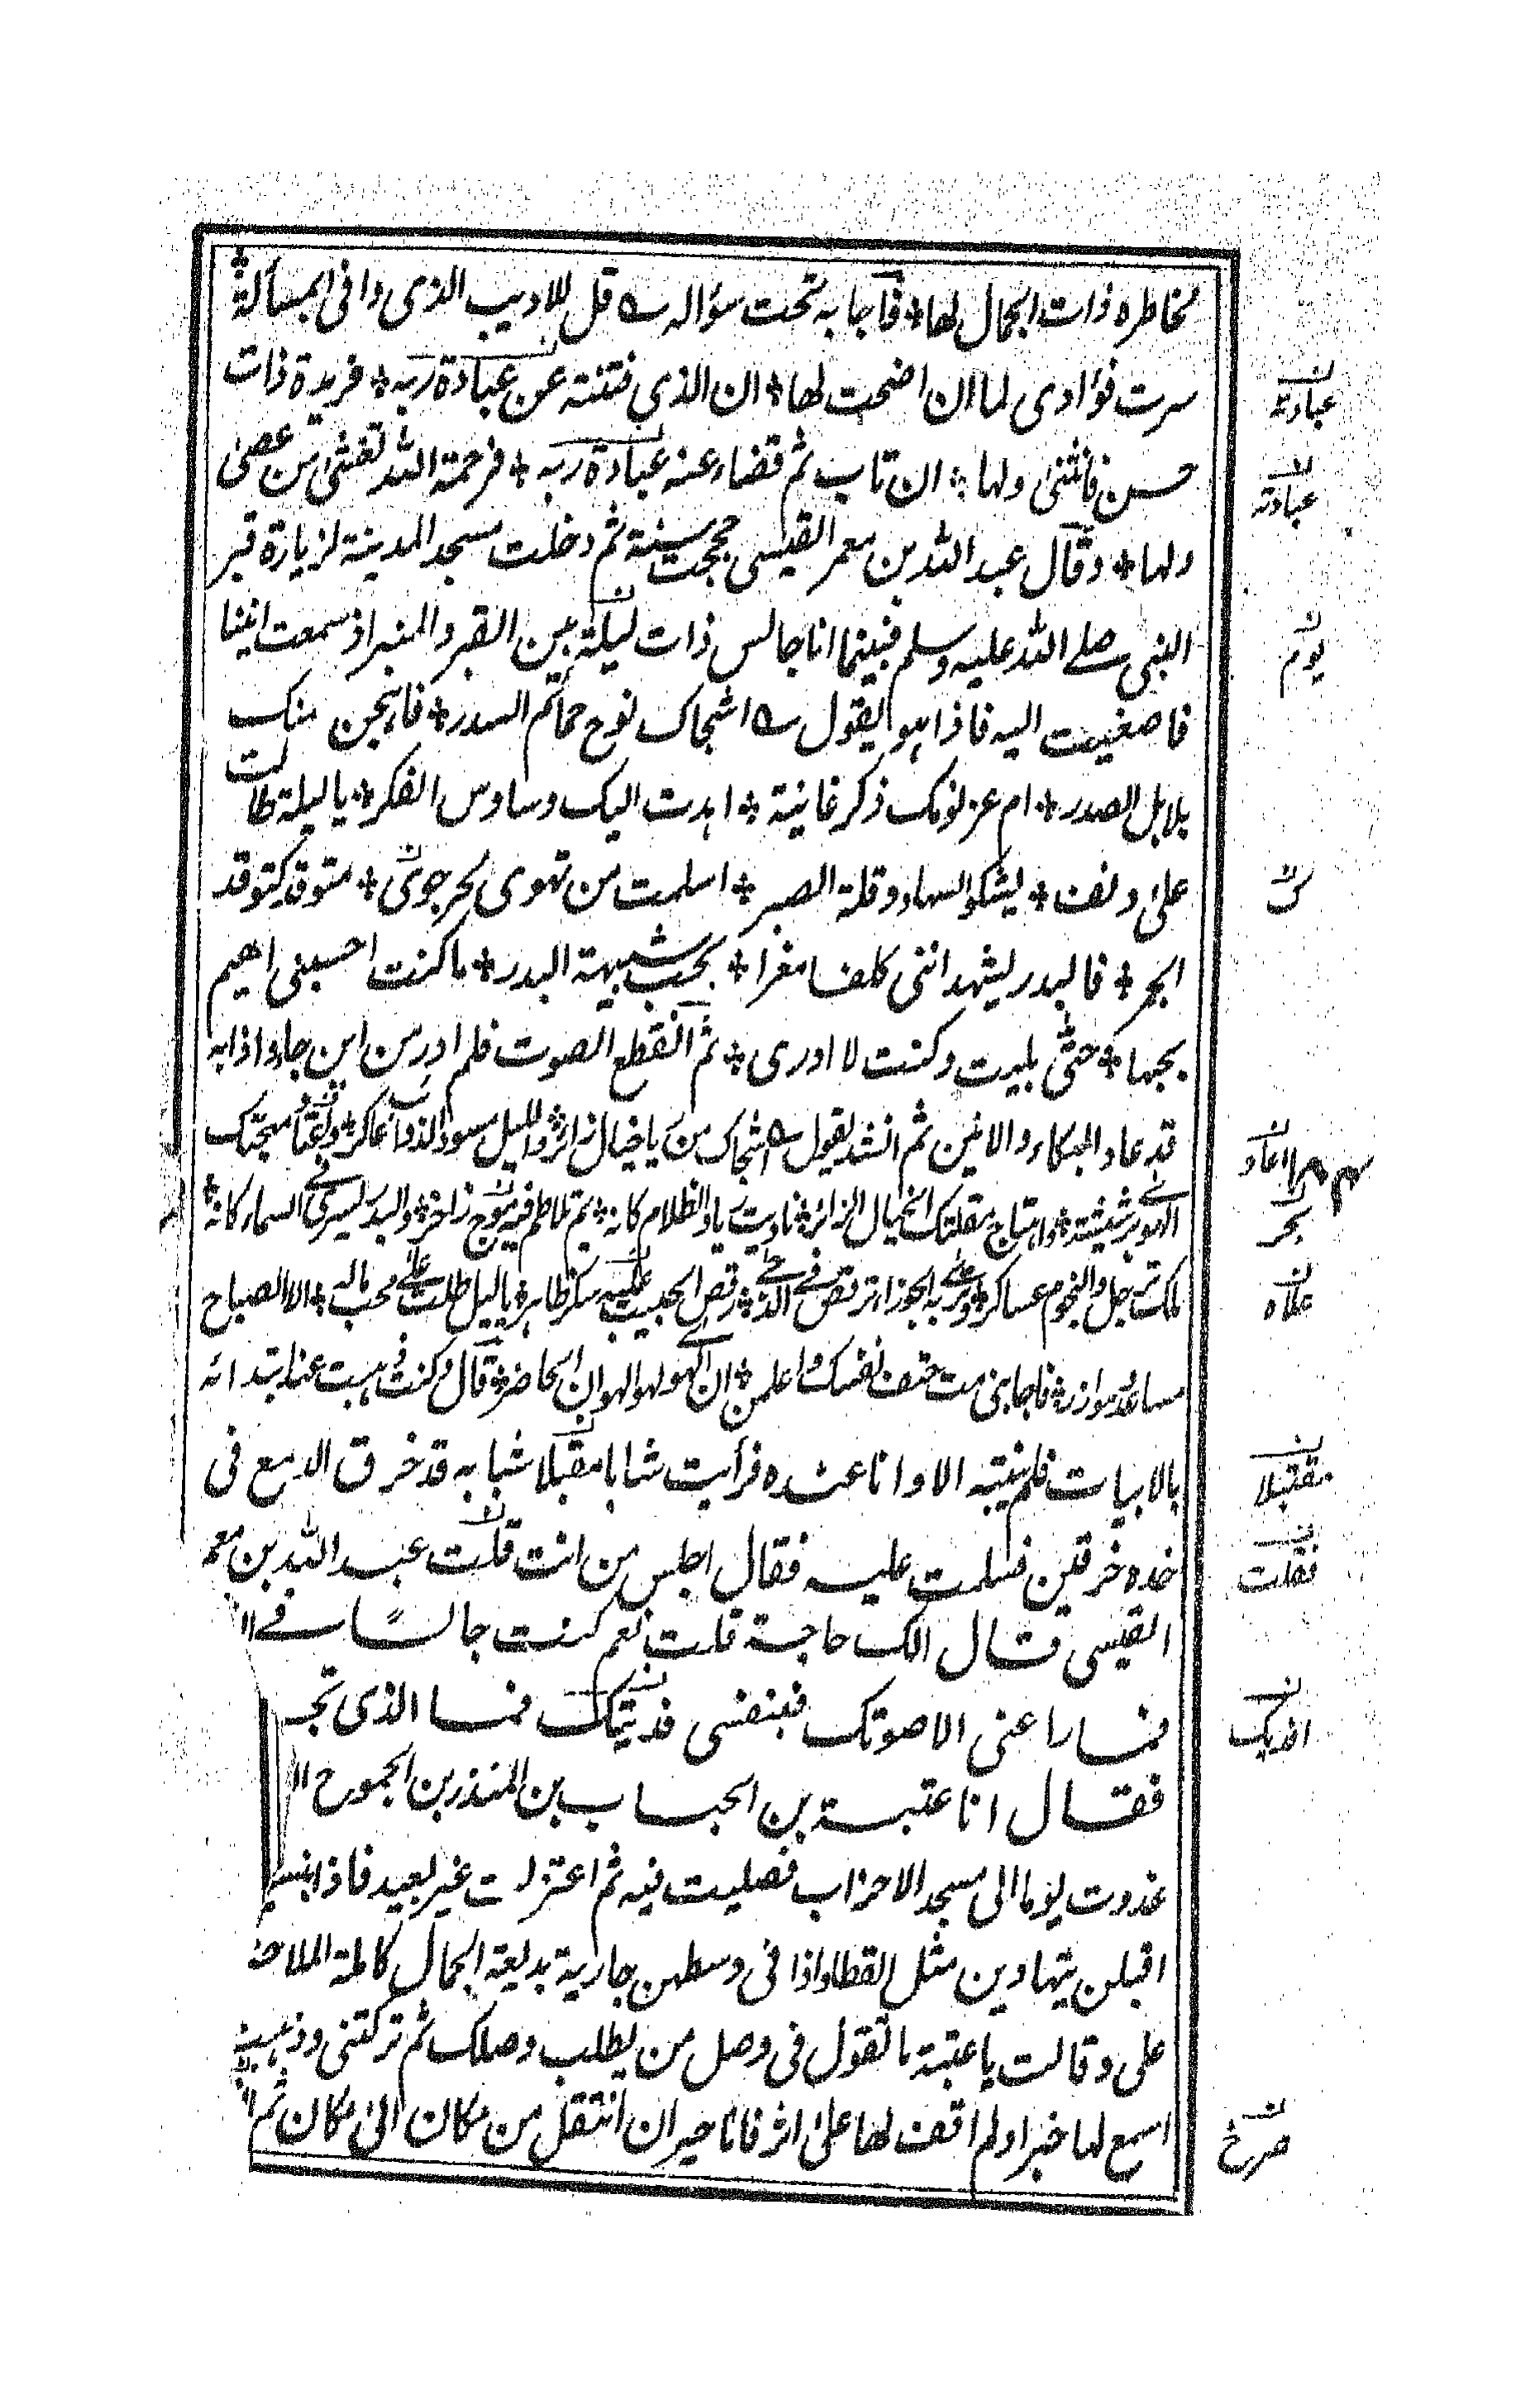 مخاطره ذات الجمال لها * فاجابه تحت سؤاله قل للاديب الذى وافى بمسألة *
سرت فؤادى لما ان اضحت لها * ان الذي فتنته عن عبادة ربه * فريدة ذات
حسن فانثنى ولها * ان تاب ثم قضاء عنه عبادة ربه * فرحمة الله تغشى من عصى
ولها * وقال عبد الله بن معمر القيسى حججت سنة ثم دخلت مسجد المدينة لزيارة قبر
النبى صلے الله عليه وسلم فبينما انا جالس ذات ليلة بين القبر والمنبر اذ سمعت انينا
فاصغيت اليه فاذا هو يقول اشجاك نوح حمائم السدر * فاهيجن منك
بلابل الصدر * ام عز نومك ذكر غانية * اهدت اليك وساوس الفكر * يا ليلة طالت
على دنف * يشكو السهاد وقلة الصبر * اسلمت من تهوى لحر جوى * متوقد كتوقد
الجمر * فالبدر يشهد اننى كلف مغرا * بحب شبيهة البدر * ما كنت احسبنى اهيم
بحبها * حتى بليت وكنت لا ادرى * ثم انقطع الصوت فلم ادر من اين جاء واذا به
قد عاد البكاء والانين ثم انشد يقول اشجاك من ريا خيال زائر * والليل مسود الذوائب عاكر * مهجتك
الهوى * واهتاج مقلتك الخيال الزائر * ناديت ريا والظلام كانه * يم تلاطم فيه موج زاخر * والبدر يسرى فے السماء كانه *
ملك ترجل والنجوم عساكر * وترى به الجوزاء ترقص فے الدجے * رقص الحبيب عليه سكر ظاهر * يا ليل طلت علے محب ماله * الا الصباح
مساعد وموازر * فاجابنى مت حتف انفك واعلمن * ان الهوى لهو الهوان الحاضر * قال وكنت ذهبت عند ابتدائه
بالابيات فلم ينتبه الا وانا عنده فرأيت شابا مقبلا شبابه قد خرق الدمع فى
خده خرقين فسلمت عليه فقال اجلس من انت قلت عبد الله بن معمر
القيسى قال الك حاجة قلت نعم كنت جالسًا فے
فما راعنى الا صوتك فبنفسى فديتك فما الذى تجـ
فقال انا عتبة بن الحباب بن المنذر بن الجموح
غدوت يوما الى مسجد الاحزاب فصليت فيه ثم اعتزلت غير بعيد فاذا
اقبلن يتهادين مثل القطا واذا فى وسطهن جارية بديعة الجمال كاملة الملاحة
على وقالت يا عتبة ما تقول فى وصل من يطلب وصلك ثم تركتنى وذهبت
اسمع لها خبرا ولم اقف لها على اثر فانا حيران انتقل من مكان الى مكان ثم
عبادته
عبادته
يوم
بحر
علاه
مقتبلا
فقلت
افديك
صرخ